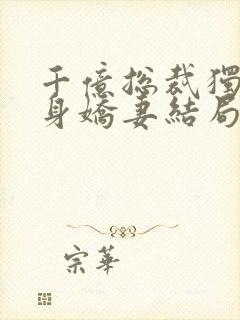 千億總裁獨
身嬌妻結局
宗華